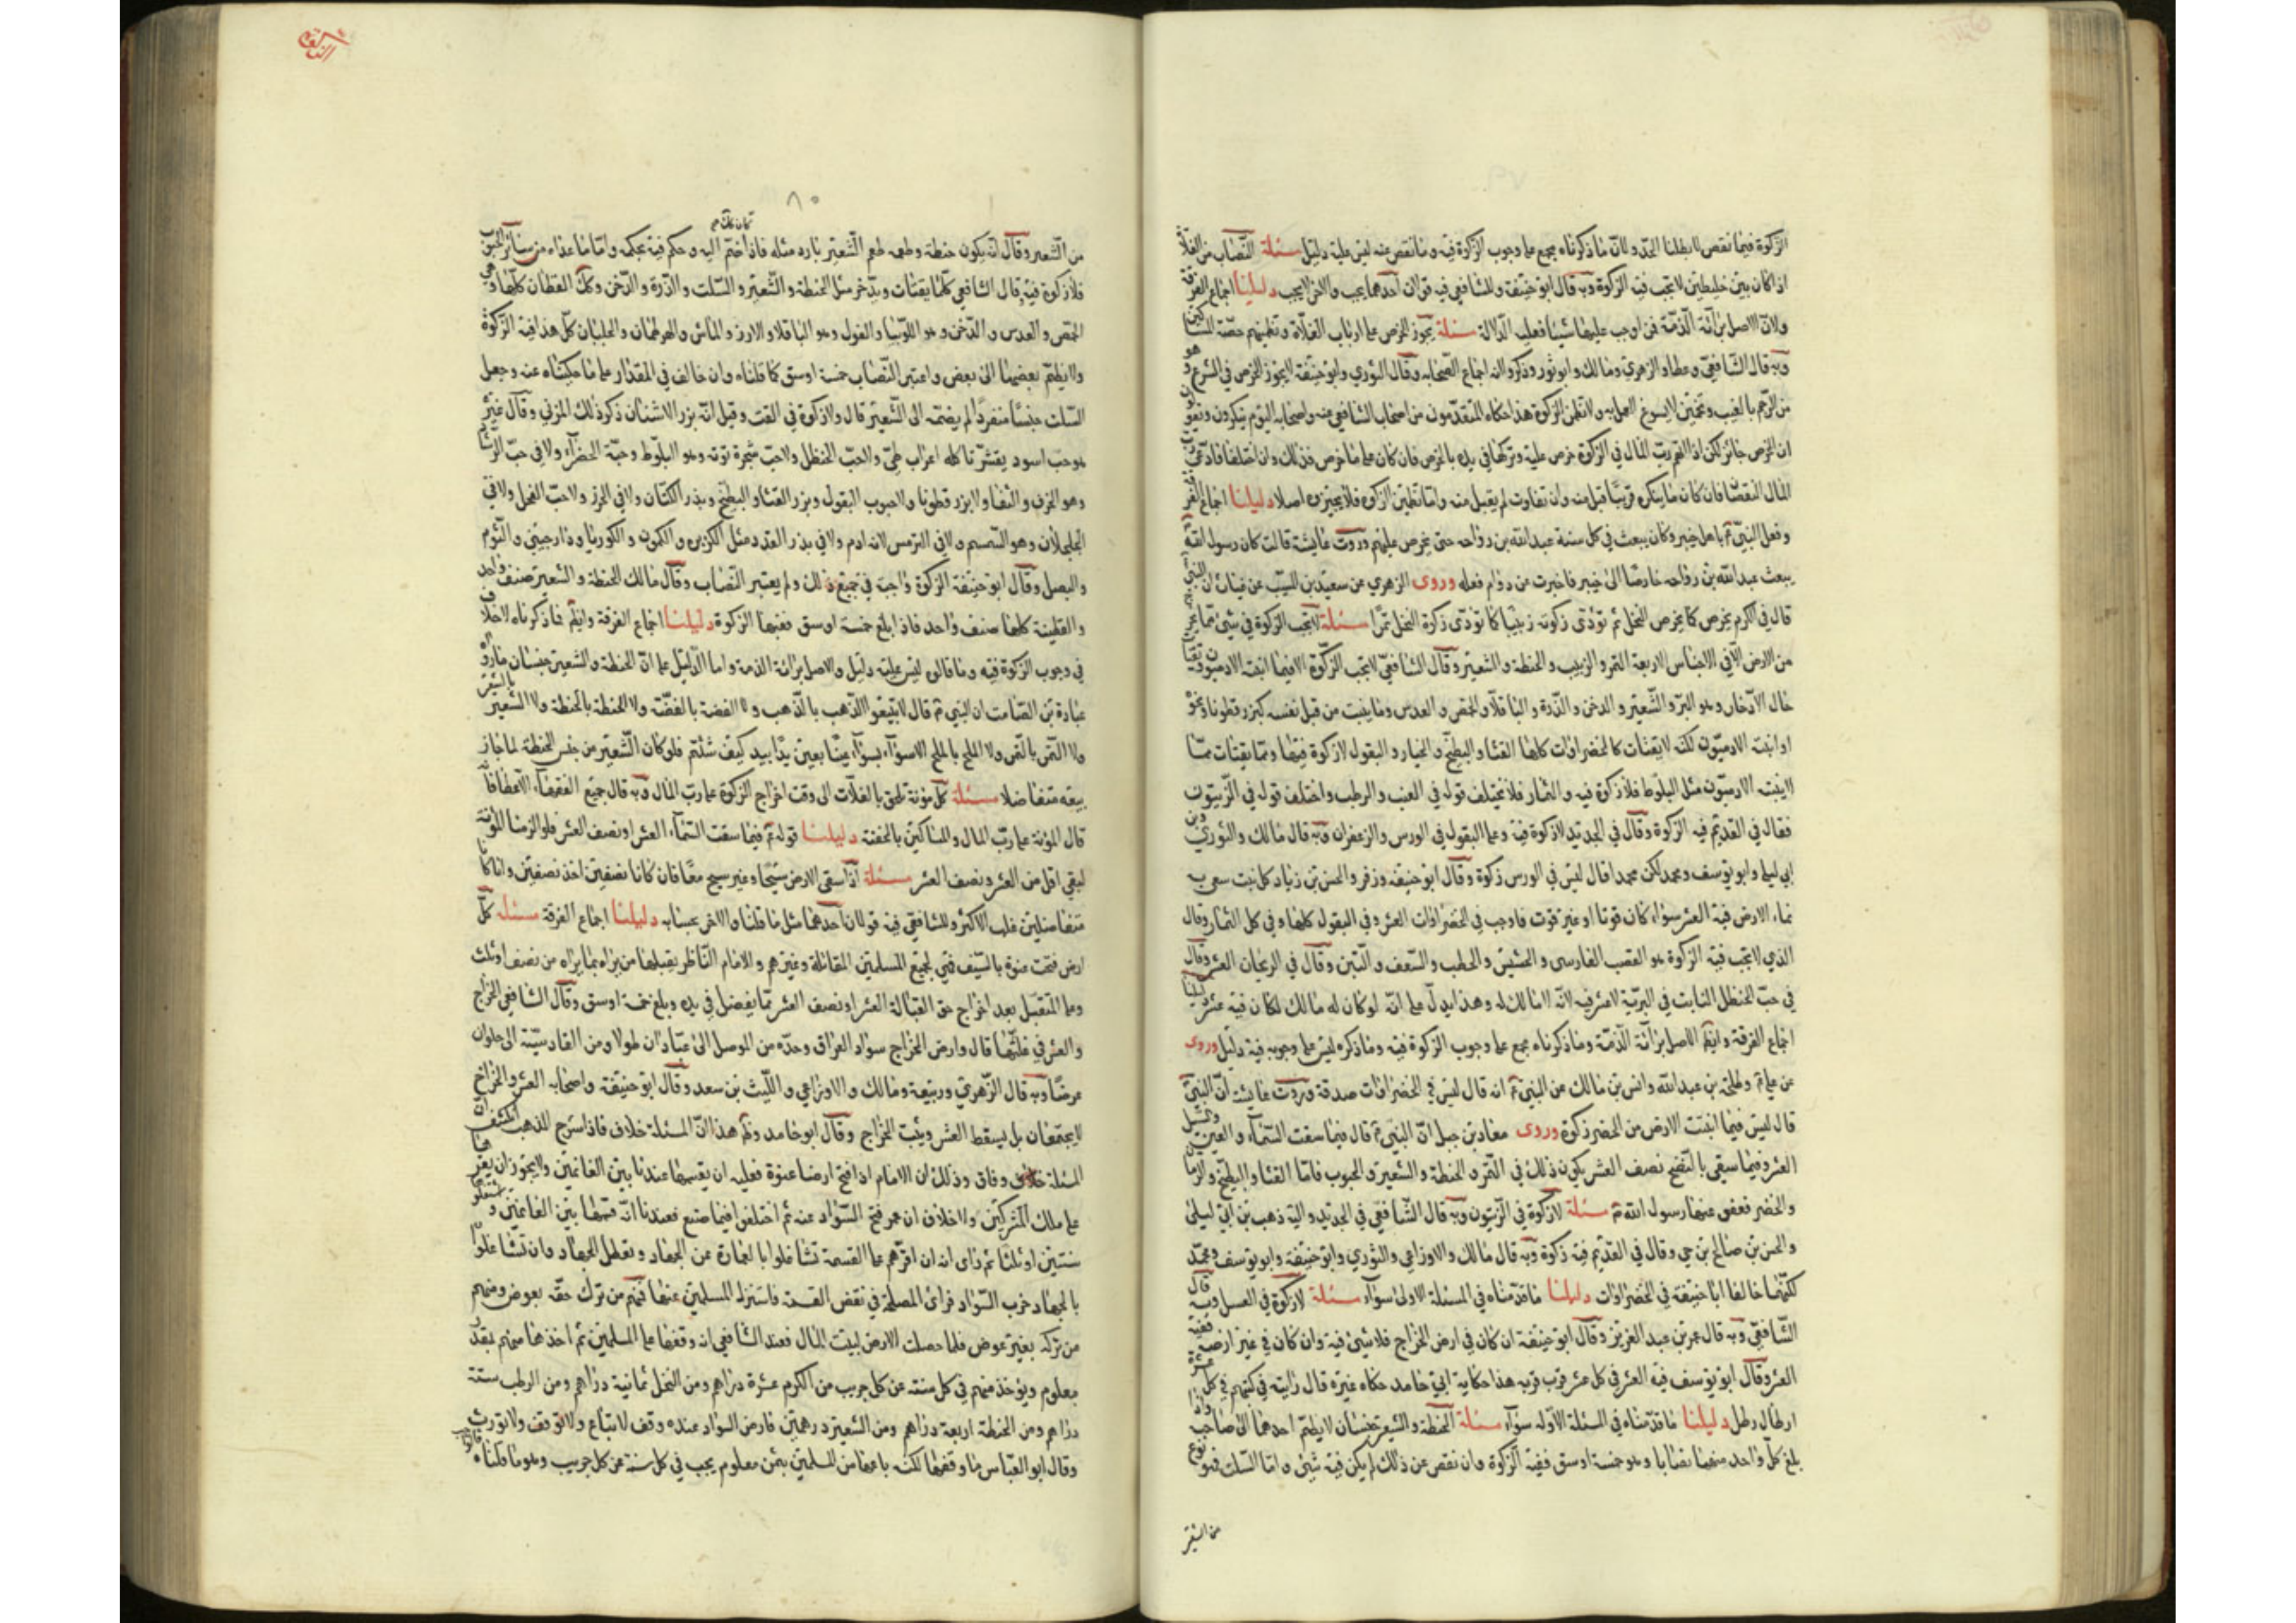 الزكوة فيما نقص لابطلنا الحد ولان ما ذكرناه مجمع على وجوب الزكوة فيه وما نقص عنه ليس عليه دليل مسئلة النصاب من الغلات
اذا كان بين خليطين لا تجب فيه الزكوة وبه قال ابو حنيفة وللشافعي فيه قولان احدهما يجب والاخر لا يجب دليلنا اجماع الفرقة
ولان الاصل براءة الذمة فمن اوجب عليهما شيئا فعليه الدلالة مسئلة يجوز الخرص على ارباب الغلات وتضمينهم حصة المساكين
وبه قال الشافعي وعطاء والزهري ومالك وابو ثور وذكروا انه اجماع الصحابه وقال الثوري وابو حنيفة لا يجوز الخرص في الشرع وهو
من الرجم بالغيب وتخمين لا يسوغ العمل به ولا تضمن الزكوة هذا حكاه المتقدمون من اصحاب الشافعي عنه واصحابه اليوم ينكرون ويقولون
ان الخرص جائز لكن اذا اتهم رب المال في الزكوة خرص عليه وتركها في يده بالخرص فان كان على ما خرص فذلك وان اختلفا فادعى رب
المال النقصان فان كان ما يذكره قريبا قبل منه وان تفاوت لم يقبل منه واما تضمين الزكوة فلا يجيزه اصلا دليلنا اجماع الفرقة
وفعل النبي ع باهل خيبر وكان يبعث في كل سنة عبد الله بن رواحه حتى يخرص عليهم وروت عايشة قالت كان رسول الله
يبعث عبد الله بن رواحه خارصا الى خيبر فاخبرت عن دوام فعله وروى الزهري عن سعيد بن المسيب عن عتاب ان النبي
قال في الكرم يخرص كما يخرص النخل ثم تؤدى زكوته زبيبا كما تؤدى زكوة النخل تمرا مسئلة لا تجب الزكوة في شيء مما يخرج
من الارض الا في الاجناس الاربعة التمر والزبيب والحنطة والشعير وقال الشافعي لا تجب الزكوة الا فيما انبته الادميون ويقتات
حال الادخار وهو البر والشعير والدخن والذرة والباقلا والحمص والعدس وما ينبت من قبل نفسه كبزر قطونا ونحوه
او انبته الادميون لكنه لا يقتات كالخضراوات كلها القثاء والبطيخ والخيار والبقول لا زكوة فيها ومما يقتات مما
لا ينبته الادميون مثل البلوط فلا زكوة فيه والثمار فلا يختلف قوله في العنب والرطب واختلف قوله في الزيتون
فقال في القديم فيه الزكوة وقال في الجديد لا زكوة فيه وعلى القولين في الورس والزعفران وبه قال مالك والثوري وابن
ابي ليلى وابو يوسف ومحمد لكن محمدا قال ليس في الورس زكوة وقال ابو حنيفة وزفر والحسن بن زياد كل نبت
نماء الارض فيه العشر سواء كان قوتا او غير قوت فاوجب في الخضراوات العشر وفي البقول كلها وفي كل الثمار وقال
الذي لا تجب فيه الزكوة هو القصب الفارسي والحشيش والحطب والسعف والتبن وقال في الريحان العشر وقال
في حب الحنظل النابت في البرية لا عشر فيه لانه لا مالك له وهذا يدل على انه لو كان له مالك لكان فيه عشر دليلنا
اجماع الفرقة وايضا الاصل براءة الذمة وما ذكرناه مجمع على وجوب الزكوة فيه وما ذكره ليس على وجوبه فيه دليل وروى
عن علي ع وطلحة بن عبد الله وانس بن مالك عن النبي ع انه قال ليس في الخضراوات صدقة وروت عايشة ان النبي
قال ليس فيما انبتت الارض من الخضر زكوة وروى معاذ بن جبل ان النبي ع قال فيما سقت السماء والعين والسيل
العشر وفيما سقي بالنضح نصف العشر يكون ذلك في التمر والحنطة والشعير والحبوب فاما القثاء والبطيخ والرمان
والخضر فعفو عنها رسول الله ع مسئلة لا زكوة في الزيتون وبه قال الشافعي في الجديد واليه ذهب بن ابي ليلى
والحسن بن صالح بن حي وقال في القديم فيه زكوة وبه قال مالك والاوزاعي والثوري وابو حنيفة وابو يوسف ومحمد
لكنهما خالفا ابا حنيفة في الخضراوات دليلنا ما قدمناه في المسئلة الاولى سواء مسئلة لا زكوة في العسل وبه قال
الشافعي وبه قال عمر بن عبد العزيز وقال ابو حنيفة ان كان في ارض الخراج فلا شيء فيه وان كان في غير ارضه ففيه
العشر وقال ابو يوسف فيه العشر في كل عشر قرب قربه هذا حكاية ابي حامد حكاه غيره قال رايته في كتبهم في كل عشرة
ارطال رطل دليلنا ما قدمناه في المسئلة الاوله سواء مسئلة الحنطة والشعير جنسان لا يضم احدهما الى صاحبه واذا
بلغ كل واحد منهما نصابا وهو خمسة اوسق ففيه الزكوة وان نقص عن ذلك لم يكن فيه شيء واما السلت فنوع
من الشعير
٨٠
من الشعير وقال انه يكون حنطة وطعمه طعم الشعير بارد مثله فاذا ضم اليه وحكم فيه بحكمه واما ما عداه من سائر الحبوب
فلا زكوة فيه قال الشافعي كلما يقتات ويدخر مثل الحنطة والشعير والسلت والذرة والدخن وكذلك القطان كلها وهي
الحمص والعدس والدخن وهو اللوبيا والفول وهو الباقلا والارز والماش والهرطمان والجلبان كل هذا فيه الزكوة
ولا يضم بعضها الى بعض واعتبر النصاب خمسة اوسق كما قلناه وان خالف في المقدار على ما حكيناه عنه وجعل
السلت جنسا منفردا لم يضمه الى الشعير قال ولا زكوة في القت وقيل انه بزر الاشنان ذكر ذلك المزني وقال غيره
هو حب اسود يقشر تاكله اعراب طي ولا حب الحنظل ولا حب شجرة وهو البلوط وحبة الخضراء ولا في حب الرشاد
وهو الحرف والثفاء ولا بزر قطونا ولا حبوب البقول وبزر القثاء والبطيخ وبذر الكتان ولا في الجزر ولا حب الفجل ولا في
الجلجلان وهو السمسم ولا في الترمس لانه ادم ولا في بذر القدر مثل الكزبره والكمون والكرويا ودارصيني والثوم
والبصل وقال ابو حنيفة الزكوة واجبة في جميع ذلك ولم يعتبر النصاب وقال مالك الحنطة والشعير صنف واحد
والقطنية كلها صنف واحد فاذا بلغ خمسة اوسق ففيها الزكوة دليلنا اجماع الفرقة وايضا فما ذكرناه لا خلاف
في وجوب الزكوة فيه وما قالوه ليس عليه دليل والاصل براءة الذمة واما الدليل على ان الحنطة والشعير جنسان ما رواه
عبادة بن الصامت ان النبي ع قال لا تبيعوا الذهب بالذهب ولا الفضة بالفضة ولا الحنطة بالحنطة ولا الشعير بالشعير
ولا التمر بالتمر ولا الملح بالملح الا سواء بسواء عينا بعين يدا بيد كيف شئتم فلو كان الشعير من جنس الحنطة لما جاز
بيعه متفاضلا مسئلة كل مؤنة تلحق بالغلات الى وقت اخراج الزكوة على رب المال وبه قال جميع الفقهاء الا عطا فانه
قال المؤنة على رب المال والمساكين بالحصة دليلنا قوله ع فيما سقت السماء العشر او نصف العشر فلو الزمنا المؤنة
لبقي اقل من العشر ونصف العشر مسئلة اذا سقى الارض سيحا وغير سيح معا فان كانا نصفين اخذ نصفين وان كانا
متفاضلين غلب الاكثر وللشافعي فيه قولان احدهما مثل ما قلناه والاخر بحسابه دليلنا اجماع الفرقة مسئلة كل
ارض فتحت عنوة بالسيف فهي لجميع المسلمين المقاتلة وغيرهم والامام الناظر يقبلها من يراه بما يراه من نصف او ثلث
وعلى المتقبل بعد اخراج حق القبالة العشر او نصف العشر مما يفضل في يده وبلغ خمسة اوسق وقال الشافعي الخراج
والعشر في غلتها قال وارض الخراج سواد العراق وحده من الموصل الى عبادان طولا ومن القادسية الى حلوان
عرضا وبه قال الزهري وربيعة ومالك والاوزاعي والليث بن سعد وقال ابو حنيفة واصحابه العشر والخراج
لا يجتمعان بل يسقط العشر ويثبت الخراج وقال ابو حامد وظاهر هذا ان المسئلة خلاف فاذا شرح المذهب انكشف ان
المسئلة وفاق وذلك ان الامام اذا فتح ارضا عنوة فعليه ان يقسمها عندنا بين الغانمين ولا يجوز ان يقرها
على ملك المشركين ولا خلاف ان عمر فتح السواد عنوة ثم اختلفوا فيما صنع فعندنا انه قسمها بين الغانمين
سنتين او ثلثا ثم راى انه ان اقرهم على القسمة تشاغلوا بالعمارة عن الجهاد وتعطل الجهاد وان تشاغلوا
بالجهاد خرب السواد فراى المصلحة في نقض القسمة فاستنزل المسلمين عنها فمنهم من ترك حقه بعوض ومنهم
من تركه بغير عوض فلما حصلت الارض لبيت المال فعند الشافعي انه وقفها على المسلمين ثم اخذها منهم بقدر
معلوم ويؤخذ منهم في كل سنة عن كل جريب من الكرم عشرة دراهم ومن النخل ثمانية دراهم ومن الرطب ستة
دراهم ومن الحنطة اربعة دراهم ومن الشعير درهمين فارض السواد عنده وقف لا تباع ولا توقف ولا تورث
وقال ابو العباس ما وقفها لكنه باعها من المسلمين بثمن معلوم يجب في كل سنة عن كل جريب وهو ما قلناه